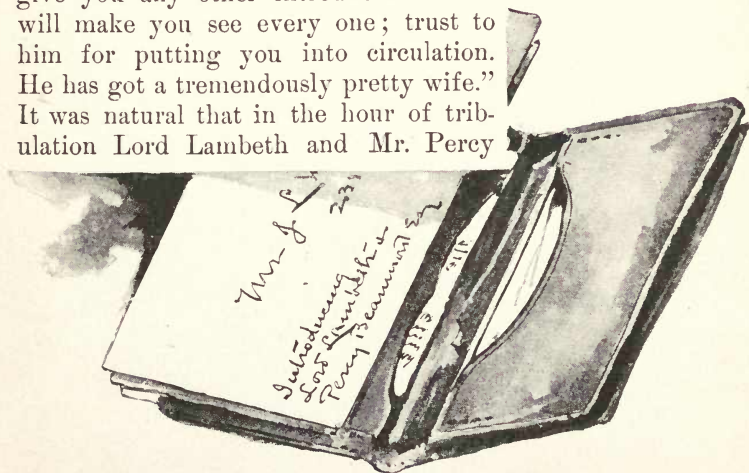 will make you see every one; trust to
him for putting you into circulation.
He has got a tremendously pretty wife.”
It was natural that in the hour of trib-
ulation Lord Lambeth and Mr. Percy
Mr J L
203
Introducing
Lord Lambeth &
Percy Beaumont Esq